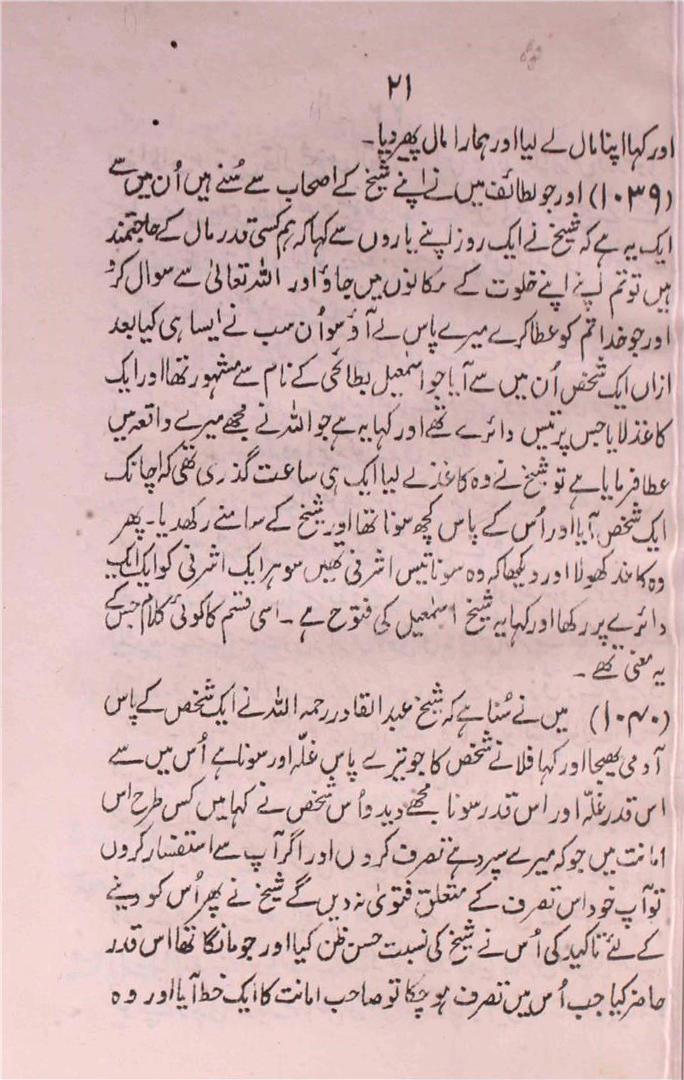 ۲۱
اور کہا اپنا مال لے لیا اور ہمارا مال پھیر دیا۔
(۱۰۳۹) اور جو لطائف میں نے اپنے شیخ کے اصحاب سے سُنے ہیں اُن میں سے
ایک یہ ہے کہ شیخ نے ایک روز اپنے یاروں سے کہا کہ ہم کسی قدر مال کے حاجتمند
ہیں تو تم اپنے اپنے خلوت کے مکانوں میں جاؤ اور اللہ تعالیٰ سے سوال کرو
اور جو خدا تم کو عطا کرے میرے پاس لے آؤ سو اُن سب نے ایسا ہی کیا بعد
ازاں ایک شخص اُن میں سے آیا جو اسمٰعیل بطائحی کے نام سے مشہور تھا اور ایک
کاغذ لایا جس پر تیس دائرے تھے اور کہا یہ ہے جو اللہ نے مجھے میرے واقعہ میں
عطا فرمایا ہے تو شیخ نے وہ کاغذ لے لیا ایک ہی ساعت گذری تھی کہ اچانک
ایک شخص آیا اور اُس کے پاس کچھ سونا تھا اور شیخ کے سامنے رکھدیا۔ پھر
وہ کاغذ کھولا اور دیکھا کہ وہ سونا تیس اشرفی تھیں سو ہر ایک اشرفی کو ایک ایک
دائرے پر رکھا اور کہا یہ شیخ اسمٰعیل کی فتوح ہے۔ اسی قسم کا کوئی کلام جس کے
یہ معنی تھے۔
(۱۰۴۰) میں نے سُنا ہے کہ شیخ عبد القادر رحمہ اللہ نے ایک شخص کے پاس
آدمی بھیجا اور کہا فلانے شخص کا جو تیرے پاس غلّہ اور سونا ہے اُس میں سے
اس قدر غلّہ اور اس قدر سونا مجھے دیدو اُس شخص نے کہا میں کس طرح اس
امانت میں جو کہ میرے سپرد ہے تصرف کروں اور اگر آپ سے استفسار کروں
تو آپ خود اس تصرف کے متعلق فتویٰ نہ دیں گے شیخ نے پھر اُس کو دینے
کے لئے تاکید کی اُس نے شیخ کی نسبت حسن ظن کیا اور جو مانگا تھا اس قدر
حاضر کیا جب اُس میں تصرف ہو چکا تو صاحب امانت کا ایک خط آیا اور وہ